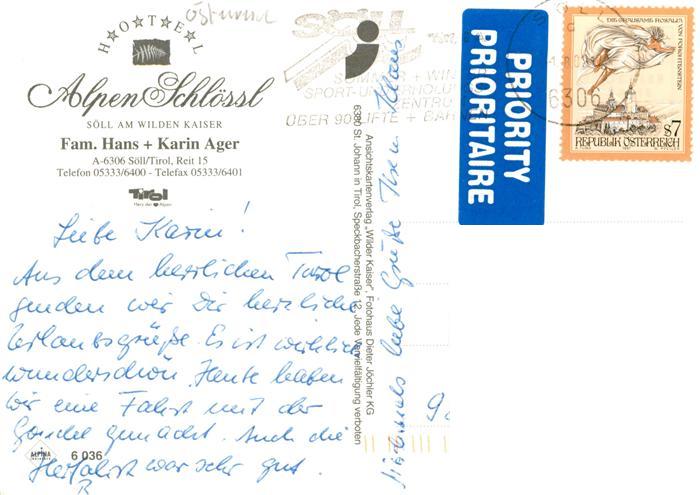 Österreich
H☆O☆T☆E☆L
Alpen Schlössl
SÖLL AM WILDEN KAISER
Fam. Hans + Karin Ager
A-6306 Söll/Tirol, Reit 15
Telefon 05333/6400 - Telefax 05333/6401
Tirol
Herz der Alpen
Liebe Karin!
Aus dem herrlichen Tirol
senden wir Dir herzliche
Urlaubsgrüße. Es ist wirklich
wunderschön. Heute haben
wir eine Fahrt mit der
Gondel gemacht. Auch die
Herfahrt war sehr gut.
ALPINA
6 036
Ansichtskartenverlag „Wilder Kaiser", Fotohaus Dieter Jöchler KG
6380 St. Johann in Tirol, Speckbacherstraße 12, Jede Vervielfältigung verboten
Nochmals liebe Grüße Klaus
SÖLL
SOMMER + WIN
SPORT- U. ERHOLU
ZENTRU
ÜBER 90 LIFTE + BAH
PRIORITY
PRIORITAIRE
6306
DIE GRAUSAME ROSALIA VON FORCHTENSTEIN
S 7
REPUBLIK ÖSTERREICH
9